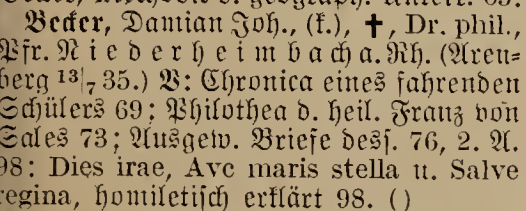 Becker, Damian Joh., (k.), ✝, Dr. phil.,
Pfr. Niederheimbach a. Rh. (Aren=
berg 13/7 35.) V: Chronica eines fahrenden
Schülers 69; Philothea d. heil. Franz von
Sales 73; Ausgew. Briefe dess. 76, 2. A.
98; Dies irae, Ave maris stella u. Salve
regina, homiletisch erklärt 98. ()